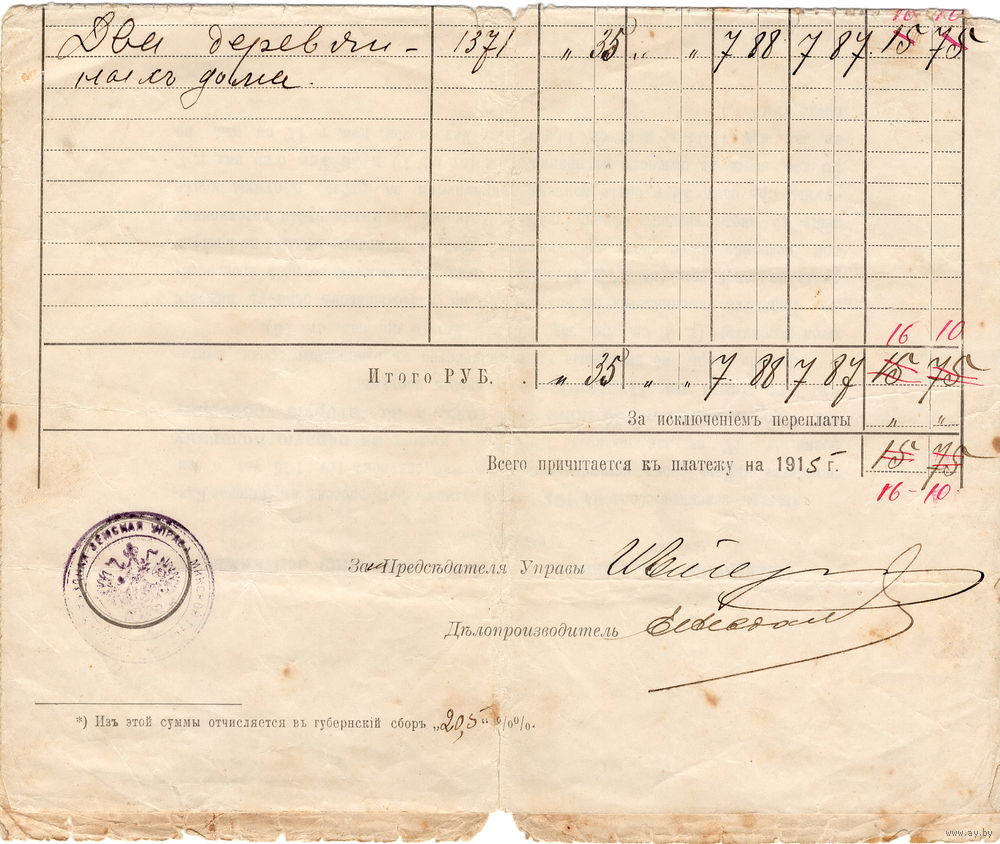 16 10
Два деревян- 1371 „ 35 „ „ 7 88 7 87 15 75
ныхъ дома.
16 10
Итого РУБ. . „ 35 „ „ 7 88 7 87 15 75
За исключеніемъ переплаты „ „
Всего причитается къ платежу на 1915 г. 15 75
16-10.
ЗЕМСКАЯ УПРАВА МИНСКОЙ
За Предсѣдателя Управы
Дѣлопроизводитель
*) Изъ этой суммы отчисляется въ губернскій сборъ „20,5“ %%.
www.ay.by